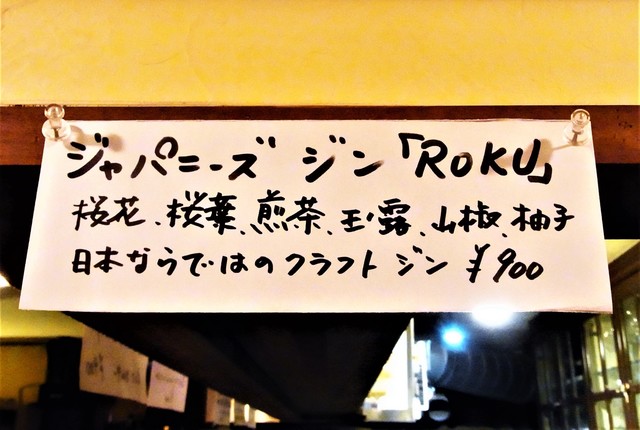 ジャパニーズ ジン「ROKU」
桜花、桜葉、煎茶、玉露、山椒、柚子
日本ならではのクラフト ジン ¥900